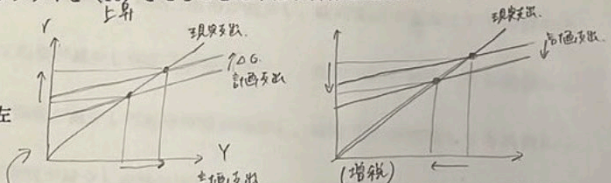 上昇
r
現実支出
↑ΔG
計画支出
左
Y
現実支出.
計画支出
(増税)